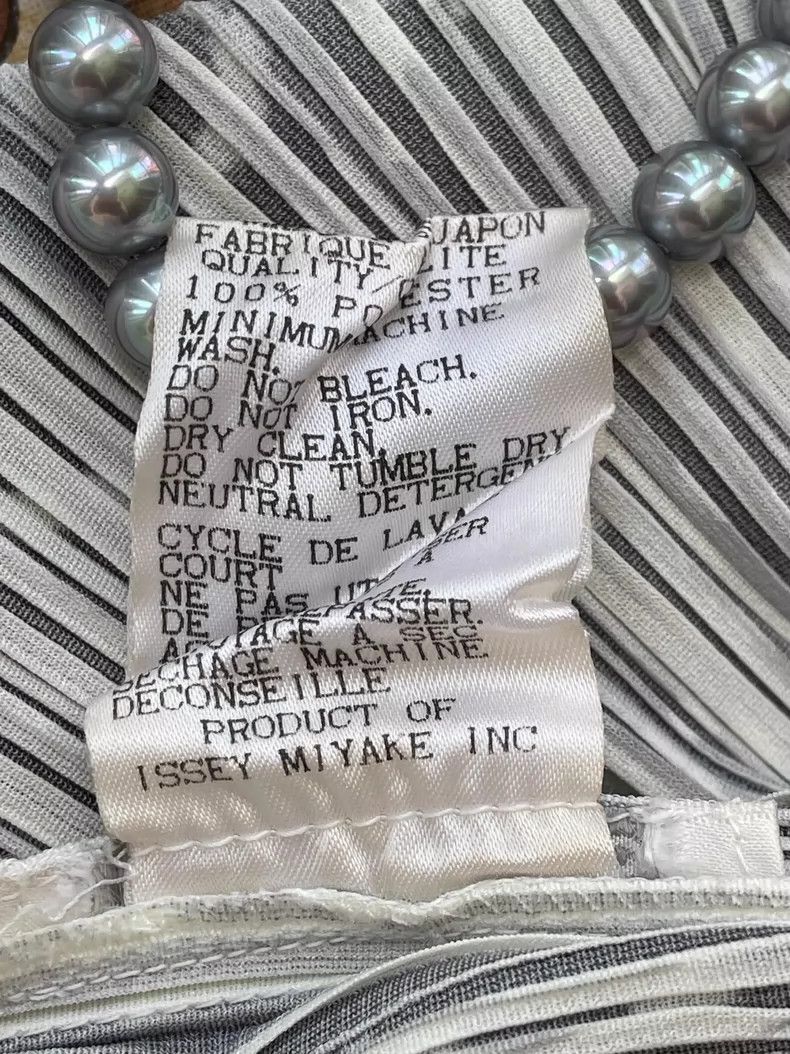 FABRIQUE JAPON
QUALITY/
100% ESTER
MINIMUM MACHINE
WASH.
DO NOT BLEACH.
DO NOT IRON.
DRY CLEAN.
DO NOT TUMBLE DRY
NEUTRAL DETERGEN
CYCLE DE LAVA
COURT
NE PAS
DE
A SEC
SECHAGE MACHINE
DECONSEILLE
PRODUCT OF
ISSEY MIYAKE INC